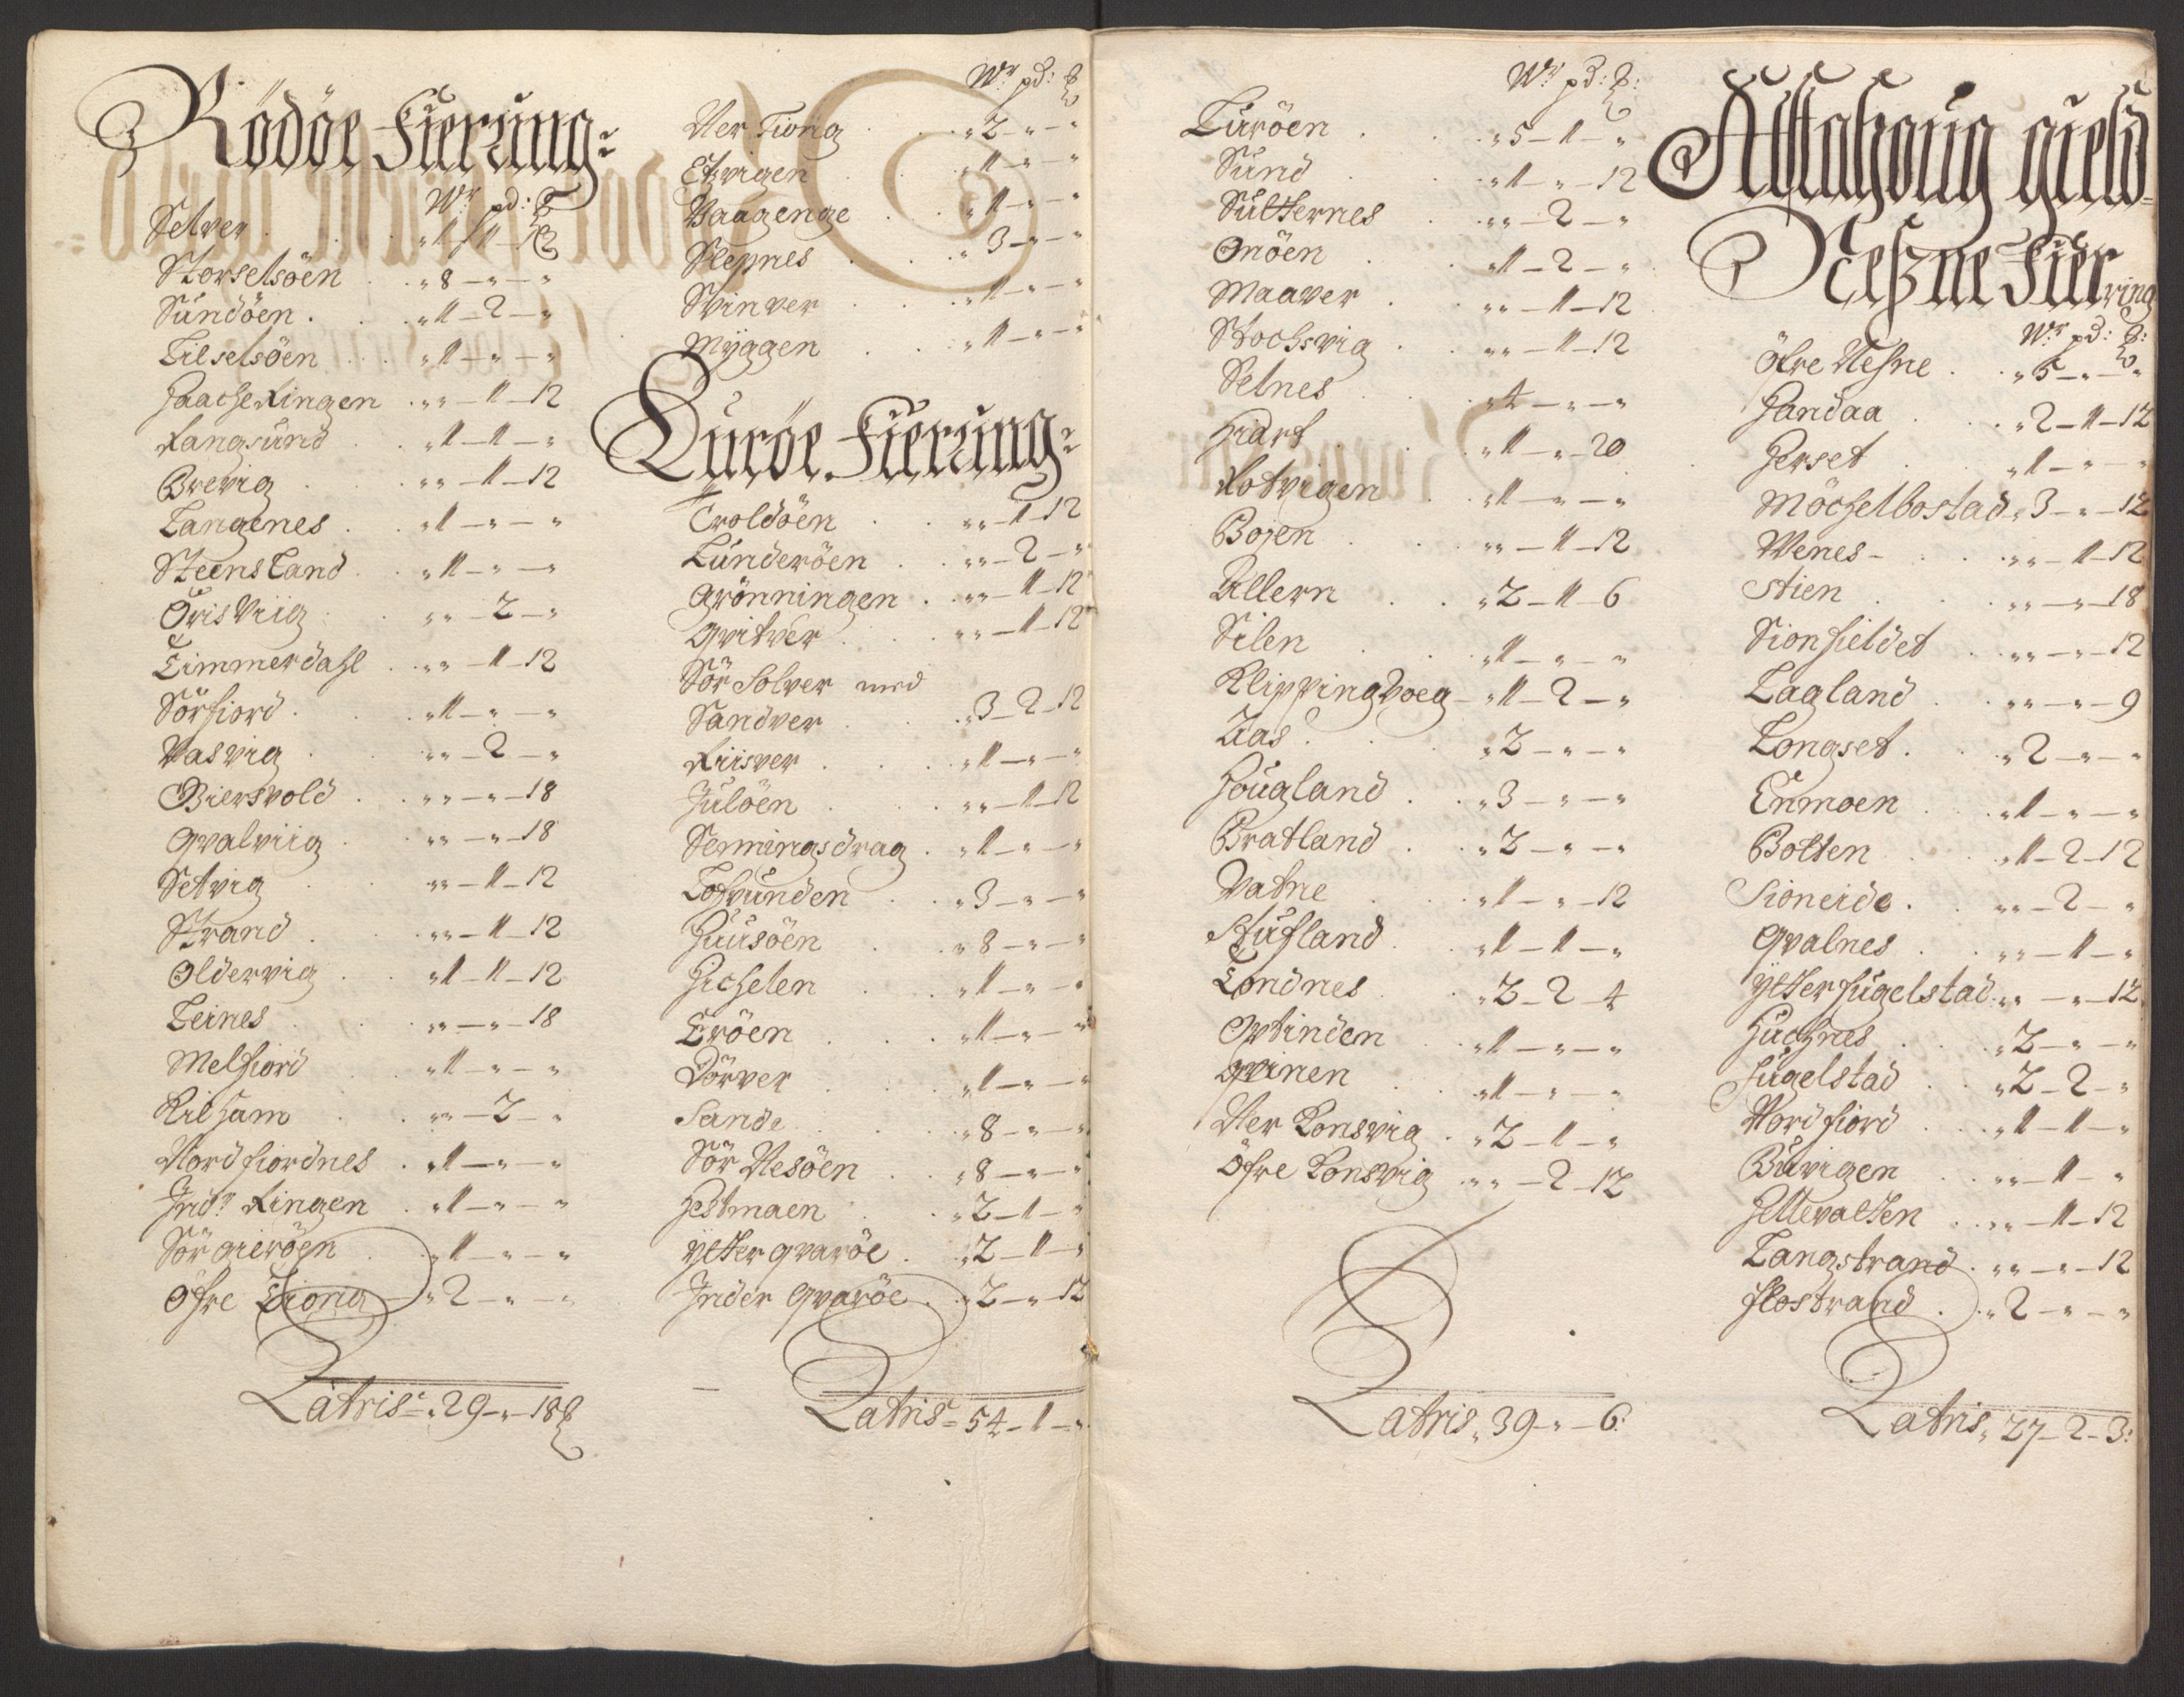 Rödöe Fierung:
Wr pd: ℔
Selver . . „ 1 – 1 – 12
Storselsöen . „ 8 – „ – „
Sundöen . . „ 1 – 2 – „
Lilselsöen . „ 1 – „ – „
Haacheringen . „ „ – 1 – 12
Rangsund . „ 1 – 1 – „
Brevig . „ „ – 1 – 12
Langenes . „ 1 – „ – „
Steensland . „ 1 – „ – „
Öris Viig . „ „ – 2 – „
Timmerdahl . „ „ – 1 – 12
Sörfiord . „ 1 – „ – „
Vasvig . „ „ – 2 – „
Biersvold . „ „ – „ – 18
Qvalviig . „ „ – „ – 18
Setvig . „ „ – 1 – 12
Strand . „ „ – 1 – 12
Oldervig . „ 1 – 1 – 12
Leines . „ „ – „ – 18
Melfiord . „ 1 – „ – „
Kilham . „ „ – 2 – „
Nordfiordnes . „ 1 – „ – „
Indr Ringen . „ 1 – „ – „
Sör gieröen . „ 1 – „ – „
Öfre Tiong – „ 2 – „ – „
Latris: „ 29 – „ – 18 ℔
Wr pd: ℔
Ner Tiong . . „ 2 – „ – „
Etvigen . „ 1 – „ – „
Vaagenge . „ 1 – „ – „
Slepnes . „ 3 – „ – „
Svinver . „ 1 – „ – „
Myggen . „ 1 – „ – „
Luröe Fierung:
Troldöen . „ „ – 1 – 12
Lunderöen . „ „ – 2 – „
Grönningen . „ „ – 1 – 12
Qvitver . „ „ – 1 – 12
Sör Solver med
Sandver . „ 3 – 2 – 12
Riisver . „ 1 – „ – „
Julöen . „ „ – 1 – 12
Senningsdrag . „ 1 – „ – „
Lofvunden . „ 3 – „ – „
Huusöen . „ 8 – „ – „
Hichelen . „ 1 – „ – „
Eröen . „ 1 – „ – „
Dörver . „ 1 – „ – „
Sande . „ 8 – „ – „
Sör Nesöen . „ 8 – „ – „
Hestmaen . „ 2 – 1 – „
Ytter qvaröe . „ 2 – 1 – „
Inder Qvaröe . „ 2 – „ – 12
Latris: 54 – 1 – „
Wr pd: ℔:
Luröen . „ 5 – 1 – „
Sund . „ 1 – „ – 12
Sulternes . „ „ – 2 – „
Onöen . „ 1 – 2 – „
Maaver . „ „ – 1 – 12
Stochsvig . „ „ – 1 – 12
Selnes . „ 4 – „ – „
Hiart . „ 1 – „ – 20
Kotvigen . „ 1 – „ – „
Bojen . „ „ – 1 – 12
Allern . „ 2 – 1 – 6
Silen . „ 1 – „ – „
Klippingvoeg – „ 1 – 2 – „
Aas . „ 2 – „ – „
Hougland . „ 3 – „ – „
Bratland . „ 2 – „ – „
Vatne . „ 1 – „ – 12
Stufland . „ 1 – 1 – „
Londnes . „ 2 – 2 – 4
Qvtinden . „ 1 – „ – „
Qvinen . „ 1 – „ – „
Ner Konsvig . „ 2 – 1 – „
Öfre Konsvig . „ „ – 2 – 12
Latris „ 39 – „ – 6:
Alstahoug gield
Neszne Fierring
Wr pd: ℔:
Öfre Nesne . „ 5 – „ – „
Handaa . „ 2 – 1 – 12
Herset . „ 1 – „ – „
Möchelbostad „ 3 – „ – 12
Wenes – . „ „ – 1 – 12
Stien . „ „ – „ – 18
Sionfieldet . „ „ – „ – 12
Lagland . „ „ – „ – 9
Longset . „ 2 – „ – „
Enmoen . „ 1 – „ – „
Bolten . „ 1 – 2 – 12
Sioneide . „ „ – 2 – „
Qvalnes . „ „ – 1 – „
Ytter fugelstad . „ „ – „ – 12
Huchnes . „ 2 – „ – „
Fugelstad . „ 2 – 2 – „
Nordfiord . „ 1 – 1 – „
Buvigen . „ „ – 1 – „
Hellevalten . „ „ – 1 – 12
Langstrand . „ „ – „ – 12
flostrand . „ 2 – „ – „
Latris „ 27 – 2 – 3: